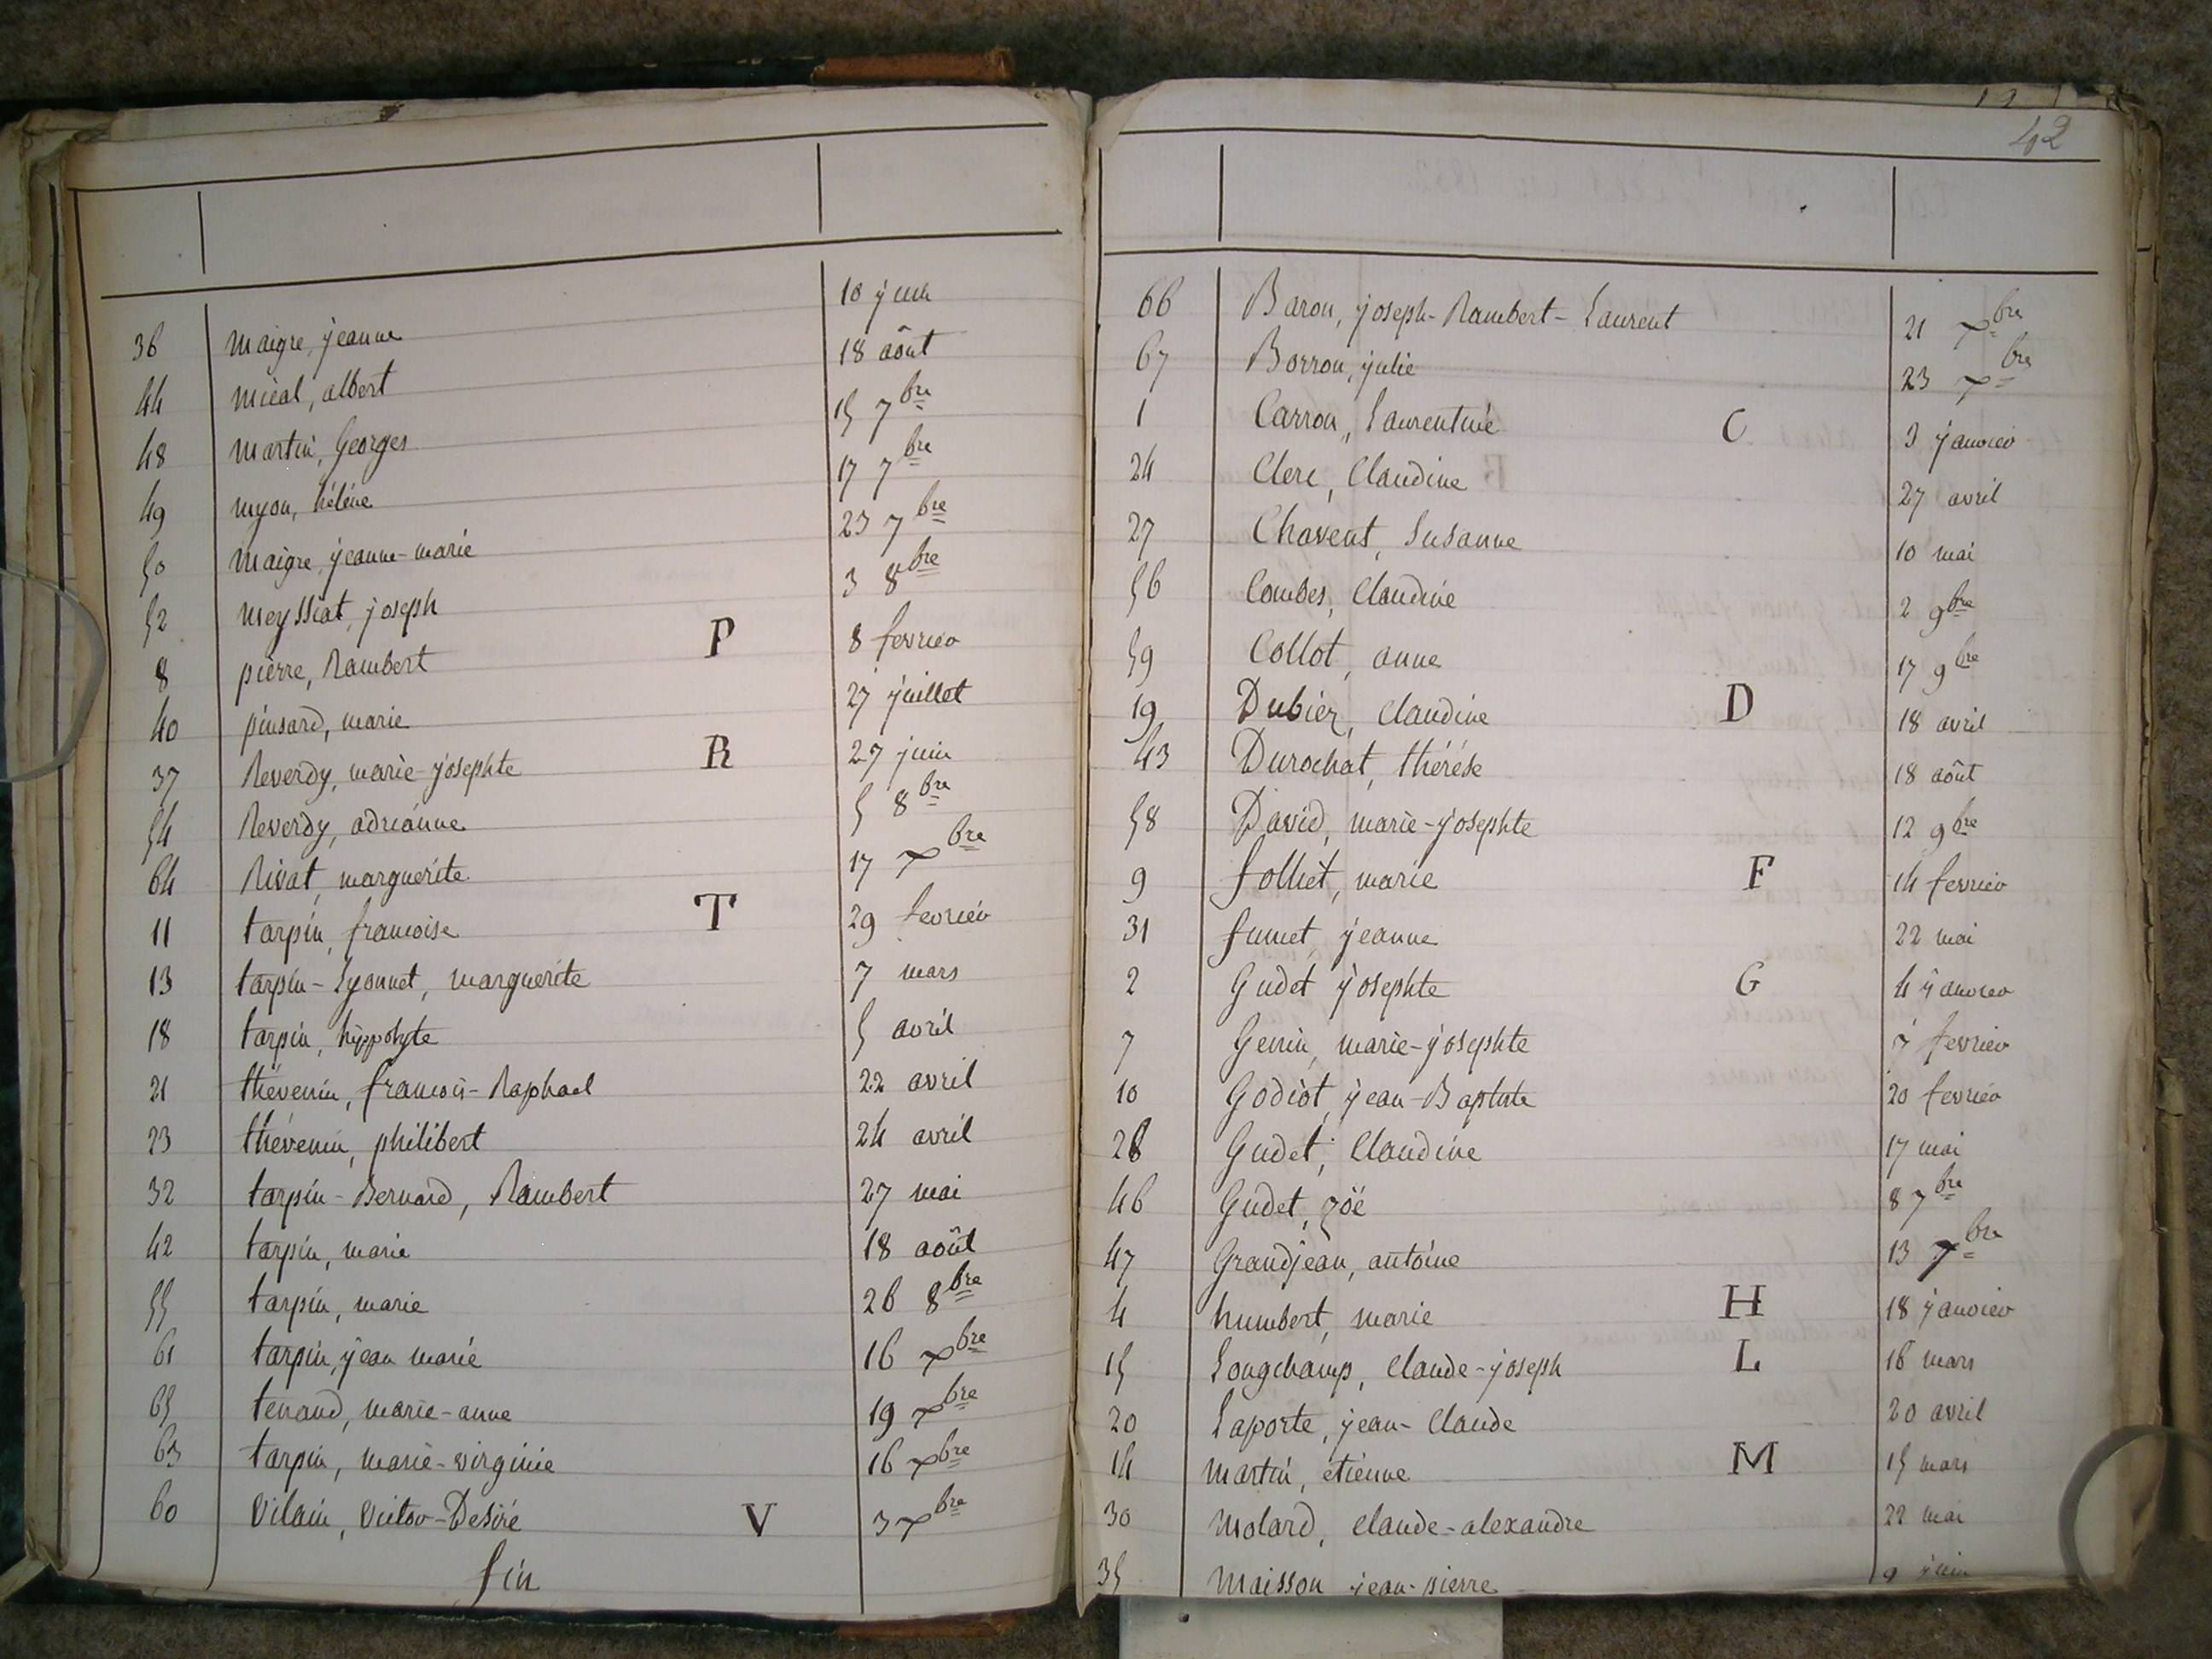 36 Maigre, jeanne 10 juin
44 micol, albert 18 août
48 martin, Georges 15 7bre
49 myon, hélène 17 7bre
50 maigre, jeanne-marie 23 7bre
52 meyssiat, joseph 3 8bre
8 pierre, Rambert P 8 fevrier
40 pinsard, marie 27 juillet
37 Reverdy, marie-josephte R 27 juin
54 Reverdy, adrianne 5 8bre
64 Rivat, marguerite 17 xbre
11 tarpin, francoise T 29 fevrier
13 tarpin-Lyonnet, marguerite 7 mars
18 tarpin, hippolyte 5 avril
21 thévenin, francois-Raphael 22 avril
23 thévenin, philibert 24 avril
32 tarpin-Bernard, Rambert 27 mai
42 tarpin, marie 18 août
55 tarpin, marie 26 8bre
61 tarpin, jean marie 16 xbre
65 tenand, marie-anne 19 xbre
63 tarpin, marie-virginie 16 xbre
60 Vilain, Victor-Desiré V 3 xbre
fin
42
66 Baron, joseph-Rambert-Laurent 21 xbre
67 Borron, julie 23 xbre
1 Carron, Laurentine C 3 janvier
24 Clerc, Claudine 27 avril
27 Chavent, Susanne 10 mai
56 Combes, Claudine 2 9bre
59 Collot, anne 17 9bre
19 Dubiez, Claudine D 18 avril
43 Durochat, thérèse 18 août
58 David, marie-josephte 12 9bre
9 folliet, marie F 14 fevrier
31 fumet, jeanne 22 mai
2 Gudet josephte G 4 janvier
7 Genin, marie-josephte 7 fevrier
10 Godiot, jean-Baptiste 20 fevrier
28 Gudet, Claudine 17 mai
46 Gudet, zöé 8 7bre
47 Grandjean, antoine 13 7bre
4 humbert, marie H 18 janvier
15 Longchamp, Claude-joseph L 16 mars
20 Laporte, jean-Claude 20 avril
14 martin, etienne M 15 mars
30 Molard, Claude-alexandre 22 mai
35 Maisson jean-pierre 9 juin